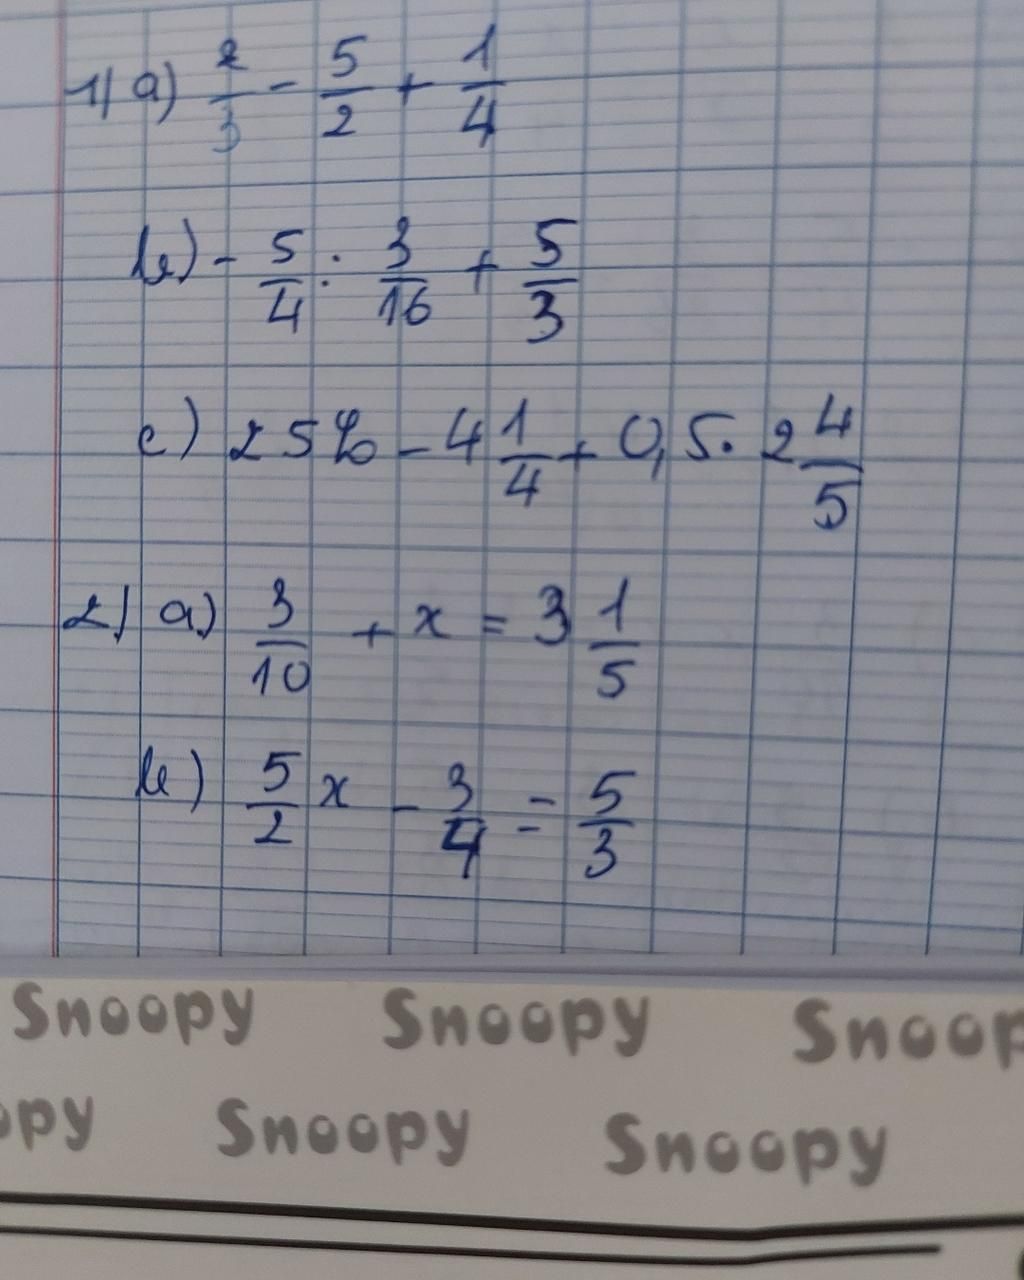 1/ a) 2/3 - 5/2 + 1/4
b) - 5/4 : 3/16 + 5/3
c) 25% - 4 1/4 + 0,5 . 2 4/5
2/ a) 3/10 + x = 3 1/5
b) 5/2 x - 3/4 = 5/3
Snoopy Snoopy Snoop
opy Snoopy Snoopy